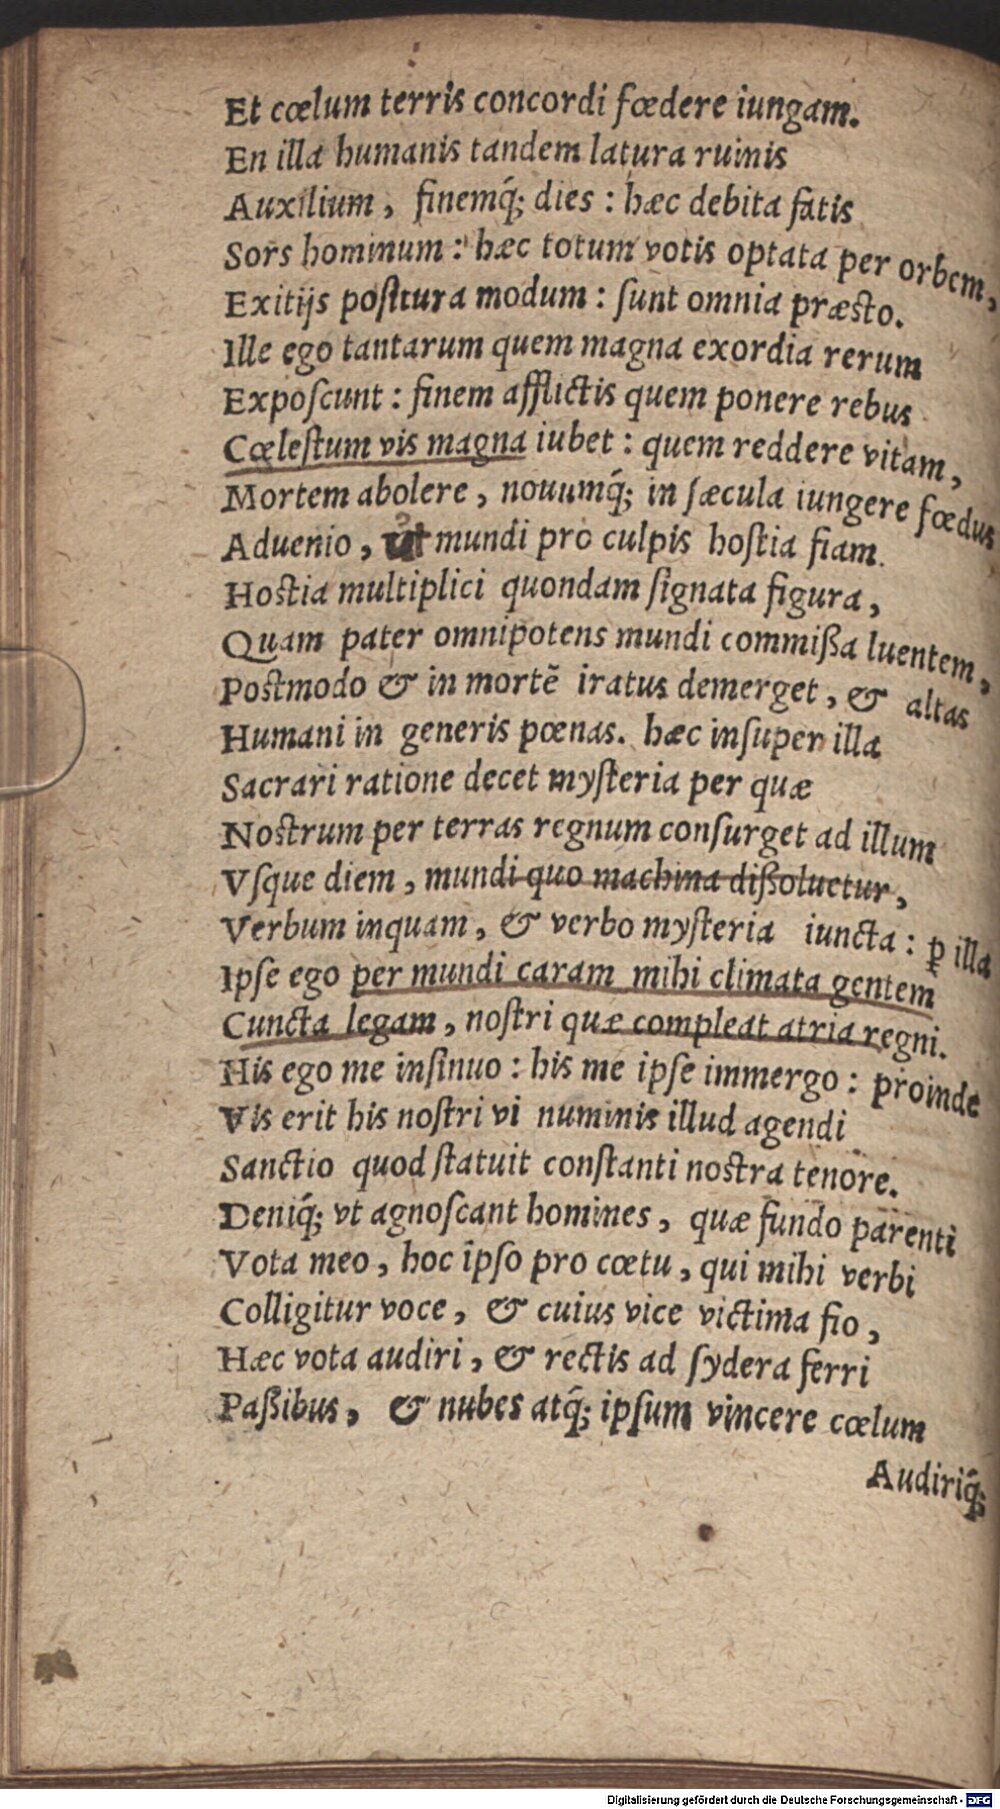 Et cœlum terris concordi fœdere iungam.
En illa humanis tandem latura ruinis
Auxilium, finemq́; dies : hæc debita fatis
Sors hominum : hæc totum votis optata per orbem,
Exitijs positura modum : sunt omnia præsto.
Ille ego tantarum quem magna exordia rerum
Exposcunt : finem afflictis quem ponere rebus
Cœlestum vis magna iubet : quem reddere vitam,
Mortem abolere, nouumq́; in sæcula iungere fœdus
Aduenio, út mundi pro culpis hostia fiam.
Hostia multiplici quondam signata figura,
Quam pater omnipotens mundi commißa luentem,
Postmodo & in mortẽ iratus demerget, & altas
Humani in generis pœnas. hæc insuper illa
Sacrari ratione decet mysteria per quæ
Nostrum per terras regnum consurget ad illum
Vsque diem, mundi quo machina dißoluetur,
Verbum inquam, & verbo mysteria iuncta : ꝑ illa
Ipse ego per mundi caram mihi climata gentem
Cuncta legam, nostri quæ compleat atria regni.
His ego me insinuo : his me ipse immergo : proinde
Vis erit his nostri vi numinis illud agendi
Sanctio quod statuit constanti nostra tenore.
Deniq́; vt agnoscant homines, quæ fundo parenti
Vota meo, hoc ipso pro cœtu, qui mihi verbi
Colligitur voce, & cuius vice victima fio,
Hæc vota audiri, & rectis ad sydera ferri
Paßibus, & nubes atq́; ipsum vincere cœlum
Audiriq́;
Digitalisierung gefördert durch die Deutsche Forschungsgemeinschaft - DFG